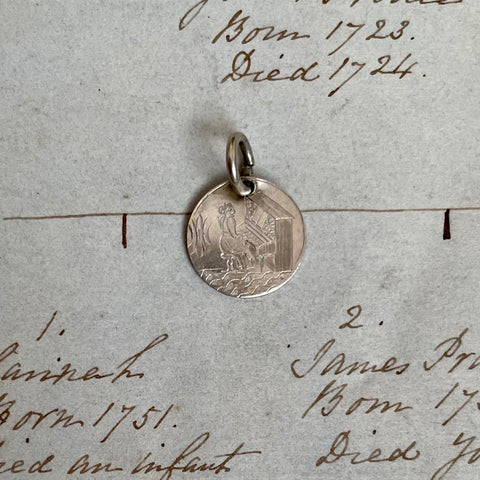 Born 1723.
Died 1724.
1.
Hannah
Born 1751.
Died an infant
2.
James Pr
Born 17
Died